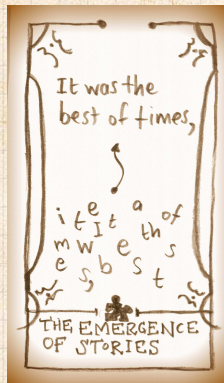 It was the
best of times,
i t e a of
I t th
m w e s
e s, b s t
THE EMERGENCE
OF STORIES